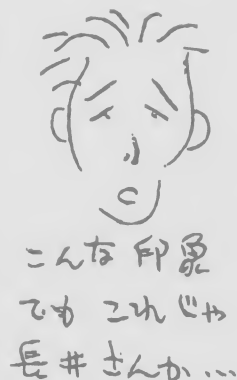 こんな印象
でもこれじゃ
長井さんか…